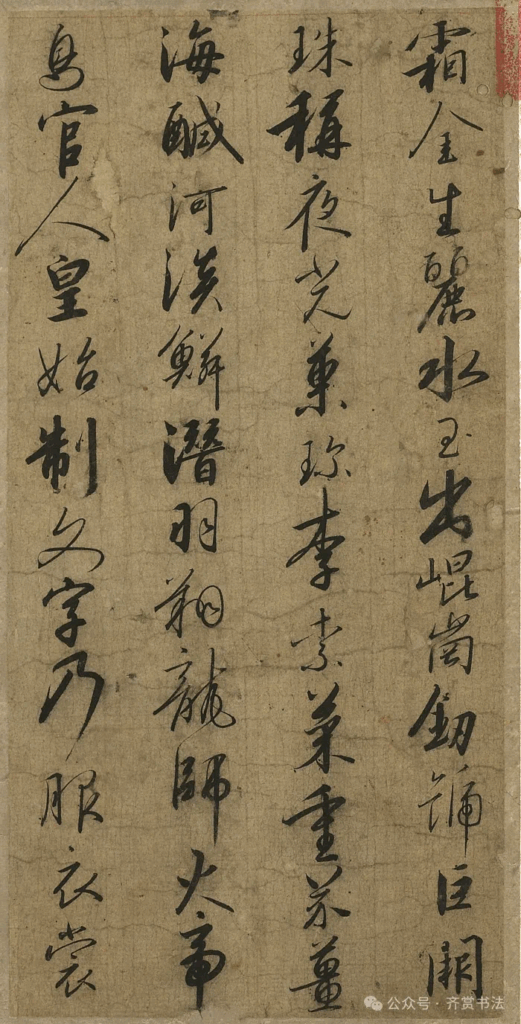 霜金生麗水玉出崐崗釰號巨闕
珠稱夜光菓珍李柰菜重芥薑
海醎河淡鱗潛羽翔龍師火帝
鳥官人皇始制文字乃服衣裳
公众号·齐赏书法